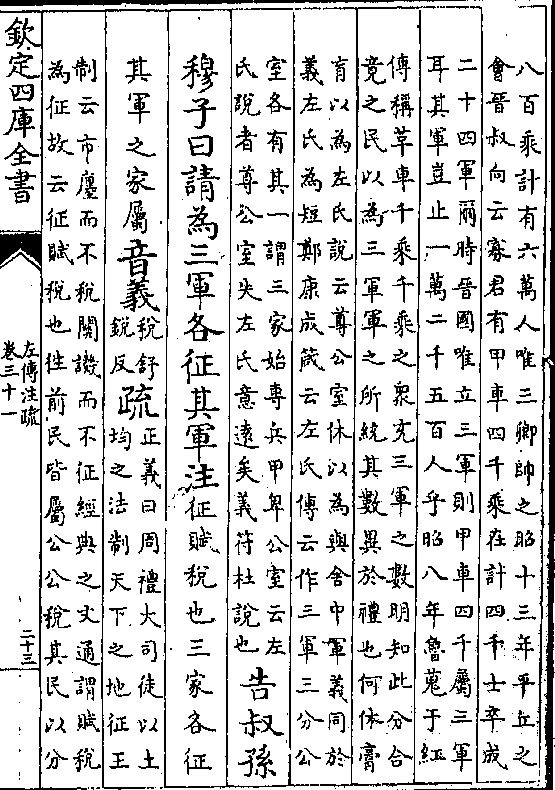 八百乘計有六萬人唯三卿帥之昭十三年平丘之
會晉叔向云寡君有甲車四千乘在計四千士卒成
二十四軍爾時晉國唯立三軍則甲車四千屬三軍
耳其軍豈止一萬二千五百人乎昭八年魯蒐于紅
傳稱革車千乘千乘之衆充三軍之數明知此分合
竟之民以為三軍軍之所統其數異於禮也何休膏
肓以為左氏說云尊公室休以為與舍中軍義同於
義左氏為短鄭康成箴云左氏傳云作三軍三分公
室各有其一謂三家始專兵甲卑公室云左
氏說者尊公室失左氏意遠矣義符杜說也
告叔孫
穆子曰請為三軍各征其軍注征賦稅也三家各征
其軍之家屬音義稅舒
銳反
疏正義曰周禮大司徒以土
均之法制天下之地征王
制云市廛而不稅關譏而不征經典之文通謂賦稅
為征故云征賦稅也往前民皆屬公公稅其民以分
欽定四庫全書
左傳注疏
卷三十一
二十三